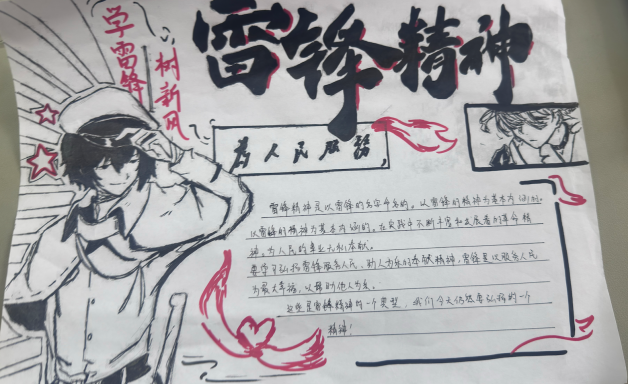 学雷锋
树新风
雷锋精神
为人民服务
雷锋精神是以雷锋的名字命名的。以雷锋的精神为基本内涵的。
以雷锋的精神为基本内涵的。在实践中不断丰富和发展着的革命精
神。为人民的事业无私奉献。
要学习弘扬雷锋服务人民,助人为乐的奉献精神,雷锋是以服务人民
为最大幸福,以帮助他人为乐。
这些是雷锋精神的一个类型,我们今天仍然要弘扬的一个
精神!